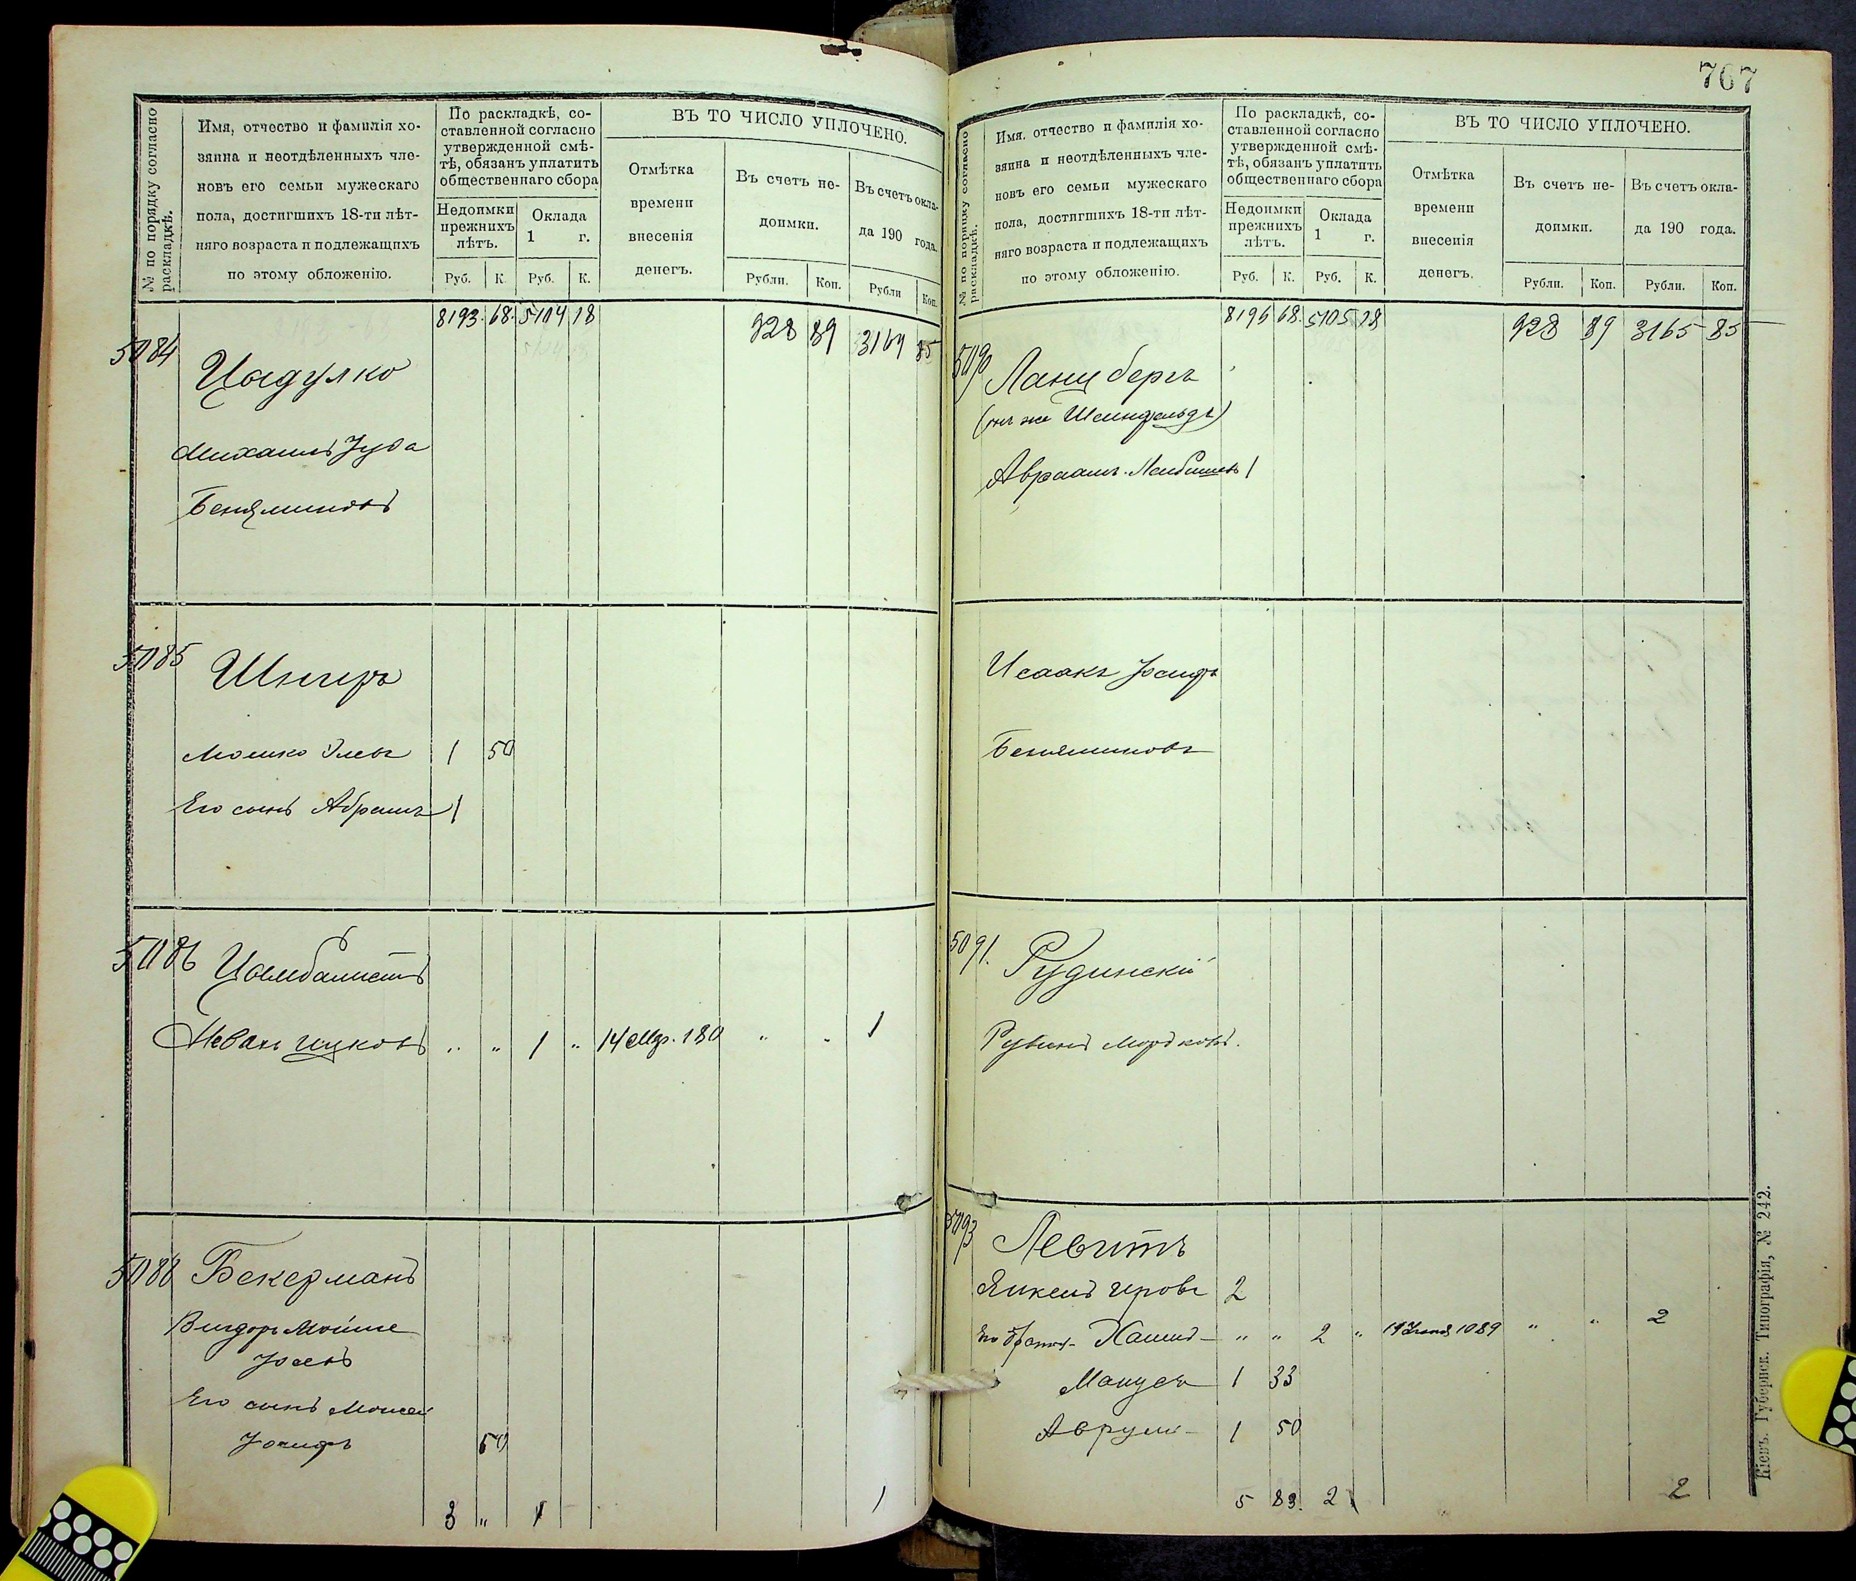 767
№ по порядку согласно раскладкѣ.
Имя, отчество и фамилія хо-
зяина и неотдѣленныхъ чле-
новъ его семьи мужескаго
пола, достигшихъ 18-ти лѣт-
няго возраста и подлежащихъ
по этому обложенію.
По раскладкѣ, со-
ставленной согласно
утвержденной смѣ-
тѣ, обязанъ уплатить
общественнаго сбора
Недоимки прежнихъ лѣтъ.
Оклада 1 г.
Руб. К. Руб. К.
ВЪ ТО ЧИСЛО УПЛОЧЕНО.
Отмѣтка
времени
внесенія
денегъ.
Въ счетъ не-
доимки.
Въ счетъ окла-
да 190 года.
Рубли. Коп. Рубли Коп.
8193. 68. 5104 18 928 89 3164 85
5084 Цыдулко
Михаилъ Іуда
Беняминовъ
5085 Шнеръ
Мошко Элевъ 1 50
Его сынъ Абрамъ 1
5086 Цымбалистъ
Иванъ Ицковъ „ „ 1 „ 14 Мар. 180 „ „ 1
5088 Бекерманъ
Вигдоръ Мойше
Іосевъ
Его сынъ Моисей
Іосифъ 50
3 „ 1 1
№ по порядку согласно раскладкѣ.
Имя, отчество и фамилія хо-
зяина и неотдѣленныхъ чле-
новъ его семьи мужескаго
пола, достигшихъ 18-ти лѣт-
няго возраста и подлежащихъ
по этому обложенію.
По раскладкѣ, со-
ставленной согласно
утвержденной смѣ-
тѣ, обязанъ уплатить
общественнаго сбора
Недоимки прежнихъ лѣтъ.
Оклада 1 г.
Руб. К. Руб. К.
ВЪ ТО ЧИСЛО УПЛОЧЕНО.
Отмѣтка
времени
внесенія
денегъ.
Въ счетъ не-
доимки.
Въ счетъ окла-
да 190 года.
Рубли. Коп. Рубли. Коп.
8196 68. 5105 18 928 89 3165 85
5090 Ланцбергъ
(онъ же Шейнфельдъ)
Авраамъ Лейбишевъ 1
Исаакъ Іосифъ
Беняминовъ
5091. Рудинскій
Рувинъ Мордковъ.
5093 Левитъ
Янкель Ицковъ 2
Его братъ- Хаимъ - „ „ 2 „ „ „ 2
Манусъ 1 33
Аврум- 1 50
5 83. 2 2
Кіевъ. Губернск. Типографія, № 242.